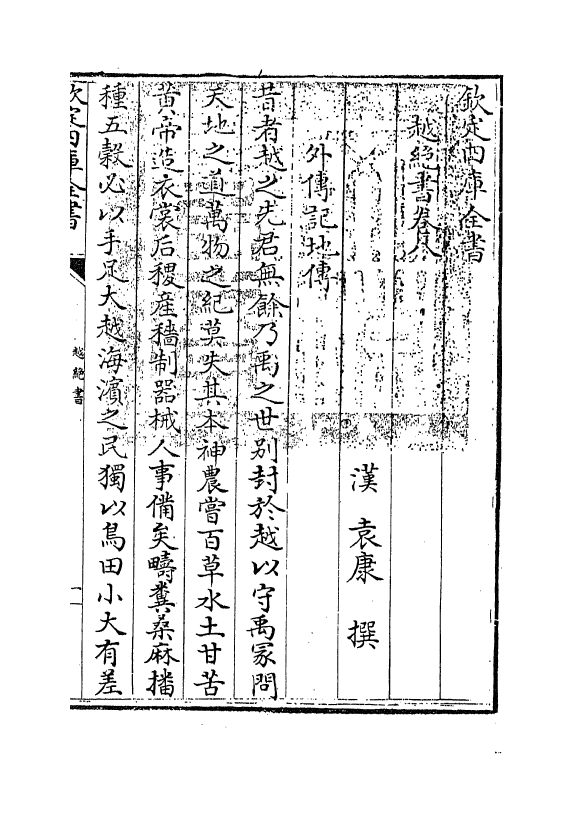 欽定四庫全書
越絶書卷八
漢 袁康 撰
外傳記地傳
昔者越之先君無餘乃禹之世别封於越以守禹冢問
天地之道萬物之紀莫失其本神農嘗百草水土甘苦
黄帝造衣裳后稷産穡制器械人事備矣疇糞桑麻播
種五穀必以手足大越海濱之民獨以鳥田小大有差
欽定四庫全書
越絶書